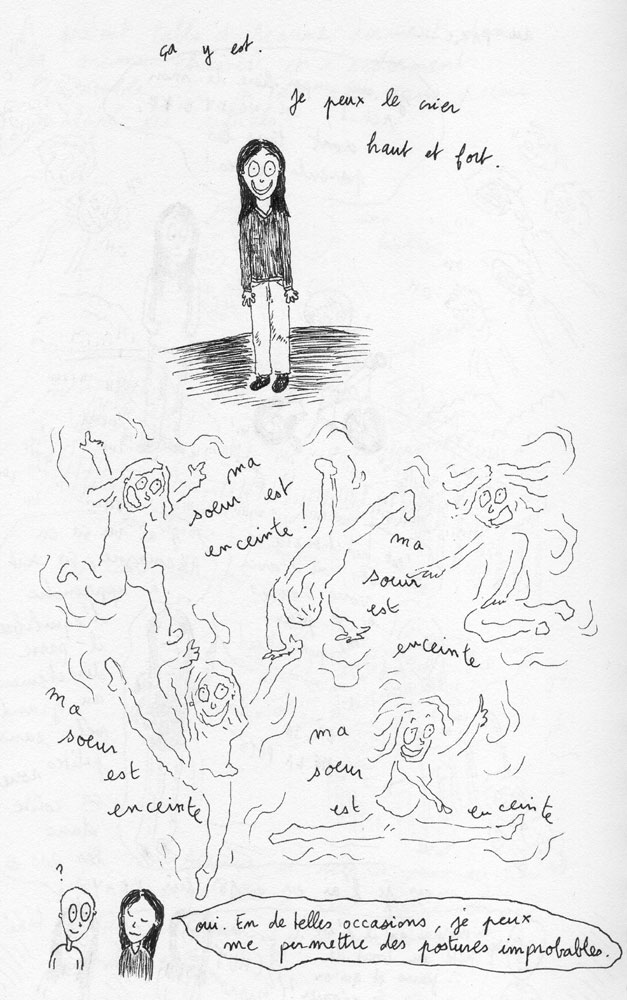 ça y est.
Je peux le crier
haut et fort.
ma
soeur est
enceinte !
ma
soeur
est
enceinte
ma
soeur
est
enceinte
ma
soeur
est enceinte
?
oui. En de telles occasions, je peux
me permettre des postures improbables.